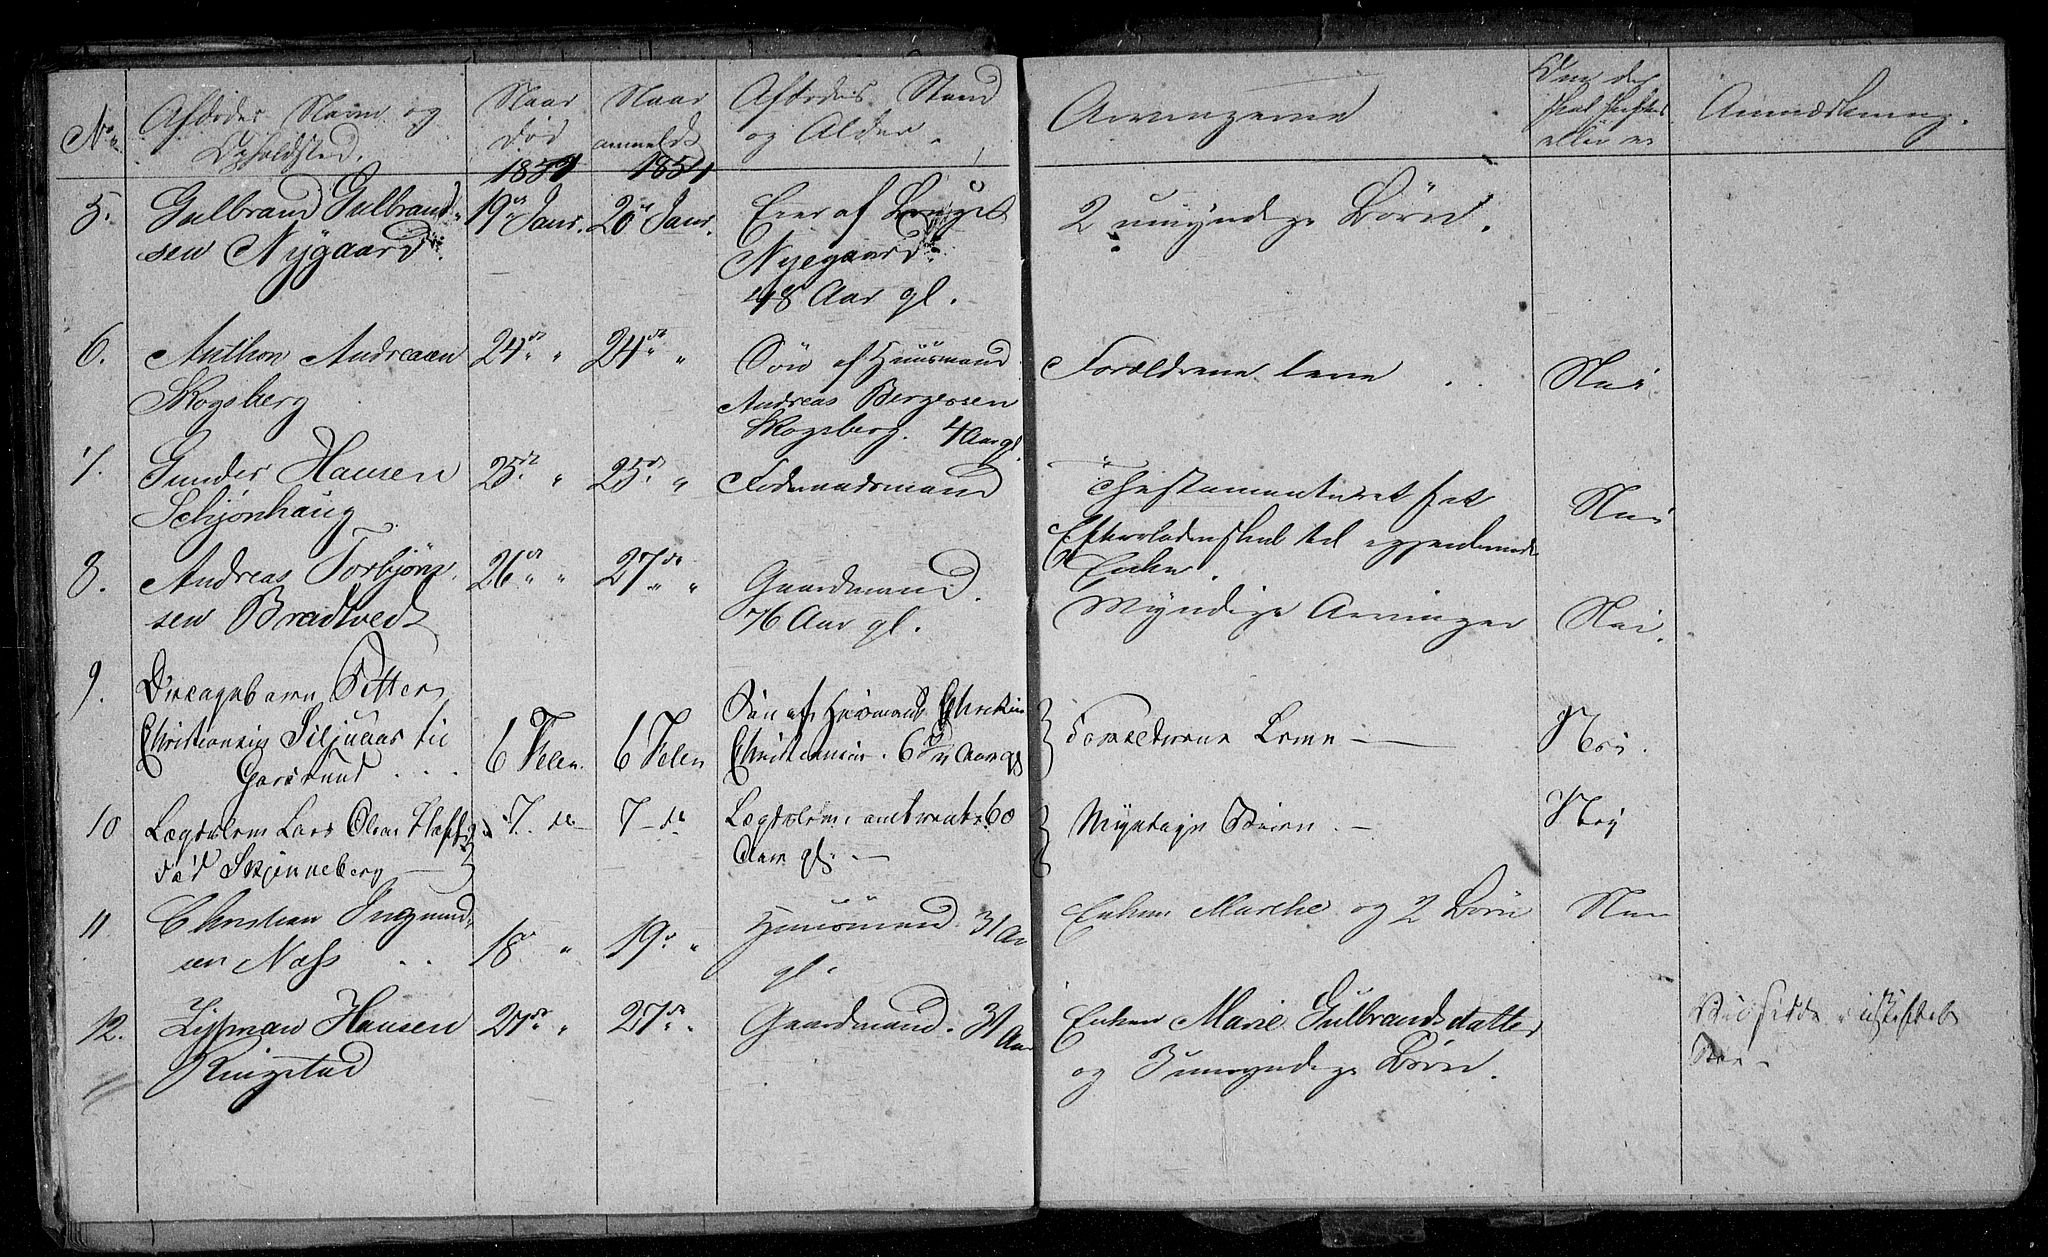 No.
Afdødes Navn og
Opholdsted.
Naar
død
1851
Naar
anmeldt
1851
Afdødes Stand
og Alder.
Arvingerne
Om der
skal skiftes
eller ei
Anmærkning.
5.
Gulbrand Gulbrand-
sen Nygaard
19de Janr.
20de Janr.
Eier af Bruget
Nyegaard
48 Aar gl.
2 umyndige Børn.
6.
Anthon Andreasen
Skogsberg
24de "
24de "
Søn af Huusmand
Andreas Børgessen
Skogsberg. 4 Aar gl.
Forældrene leve
Nei.
7.
Gunder Hansen
Schjønhaug
25de "
25de "
Føderaadsmand
Thestamenteret sit
Efterladenskab til
Enke.
Nei
8.
Andreas Torbjørn-
sen Brødtvedt
26de "
27de "
Gaardmand.
76 Aar gl.
Myndige Arvinger
Nei.
9.
Drengebarn Petter
Christiansen Siljuaas til
6 Febr.
6 Febr.
Søn af Huusmand
Christiansen. 6 Aar gl
Forældrene Leve —
Nei.
10
Lægdslem Lars Olsen
død Skjønneberg —
7 de
7 — de
Lægdslem, omtrent 60
Aar gl. —
Myndige Børn. —
Nej
11
Christian Ingmund-
sen Næss
18de "
19de "
Huusmand. 31 Aar
gl.
Enken Marthe og 2 Børn
Nei
12.
Lippman Hansen
Ringstad
27de "
27de "
Gaardmand. 31 Aar
Enken Marie Gulbrandsdatter
og 3 umyndige Børn.